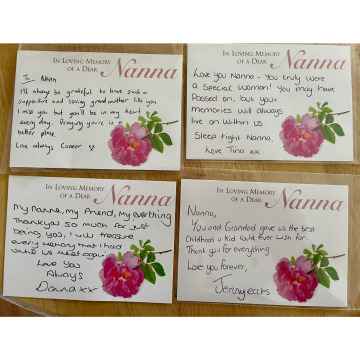 IN LOVING MEMORY
OF A DEAR Nanna
To Nana
I'll always be grateful to have such a
supportive and loving grandmother like you.
I miss you but you'll be in my heart
every day. Praying you're in a
better place.
Love always Connor xx
IN LOVING MEMORY
OF A DEAR Nanna
Love you Nanna - You truly were
a Special Woman! You may have
Passed on, but your
memories will always
live on within us.
Sleep tight Nanna
Love Tina xx
IN LOVING MEMORY
OF A DEAR Nanna
My Nanna, my friend, my everything
Thankyou so much for just
being you, I will treasure
every memory that I had
until we meet again
Love you
Always
Danna xx
IN LOVING MEMORY
OF A DEAR Nanna
Nanna,
You and Grandad gave us the best
Childhood a kid could ever wish for.
Thank you for everything.
Love you forever,